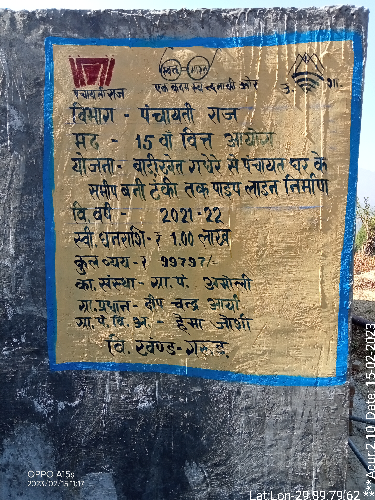 स्वच्छ भारत
पंचायतीराज एक कदम स्वच्छता की ओर उ. शा.
विभाग - पंचायती राज
मद - 15 वां वित्त आयोग
योजना - बाड़ीखेत गधेरे से पंचायत घर के
समीप बनी टंकी तक पाइप लाइन निर्माण
वि. वर्ष - 2021-22
स्वी. धनराशि - ₹ 1.00 लाख
कुल व्यय - ₹ 99797/-
का. संस्था - ग्रा. पं. असौली
ग्रा. प्रधान - दीप चन्द्र आर्या
ग्रा. पं. वि. अ. - हेमा जोशी
वि. खण्ड - गरुड़
OPPO A15s
2023/02/15 11:17
Lat:Lon-29.89:79.62 ***Acur:2.10, Date: 15-02-2023